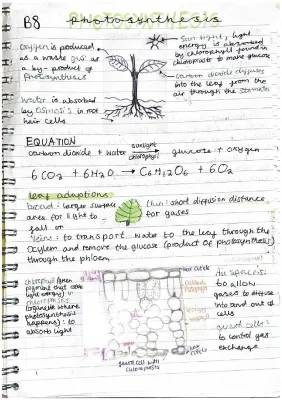 B8 photosynthesis
Oxygen is produced
as a waste gas as
a by-product of
Photosynthesis
Sun light, light
energy is absorbed
by chlorophyll found in
chloroplasts to make glucose
carbon dioxide diffuses
into the leaf from the
air through the stomata
Water is absorbed
by osmosis in root
hair cells
EQUATION
carbon dioxide + water sunlight chlorophyll glucose + oxygen
6CO2 + 6H2O → C6H12O6 + 6O2
leaf adaptions
broad: larger surface
area for light to
fall on
thin: short diffusion distance
for gases
veins: to transport water to the leaf through the
xylem and remove the glucose (product of photosynthesis)
through the phloem
chlorophyll (green
pigment that
light energy) in
chloroplasts
(organelle where
photosynthesis
happens): to
absorb light
air spaces:
to allow
gases to diffuse
into and out of
cells
guard cells:
to control gas
exchange
guard cell with
chloroplasts